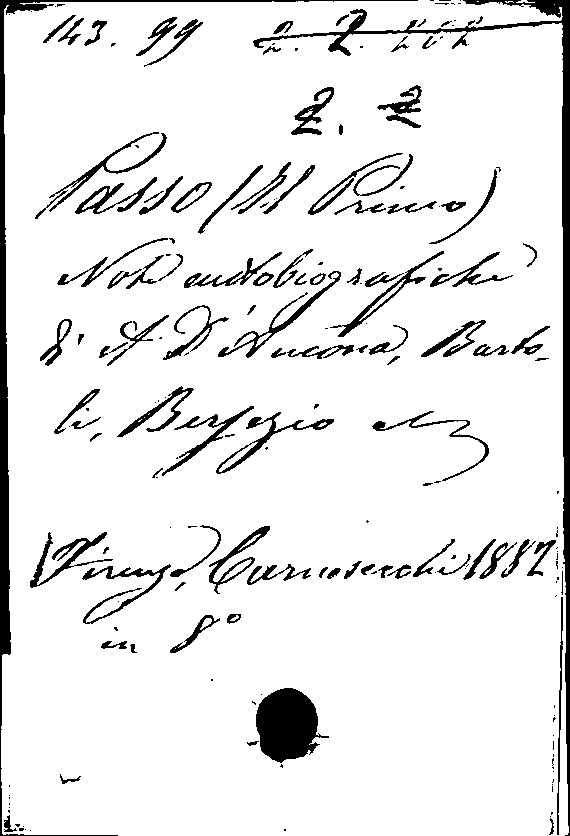 143. 99 2. 2. 202
2. 2
Passo (Il Primo)
Note autobiografiche
di A D'Ancona, Barto-
li, Bersezio etc
Firenze, Carnesecchi 1882
in 8°